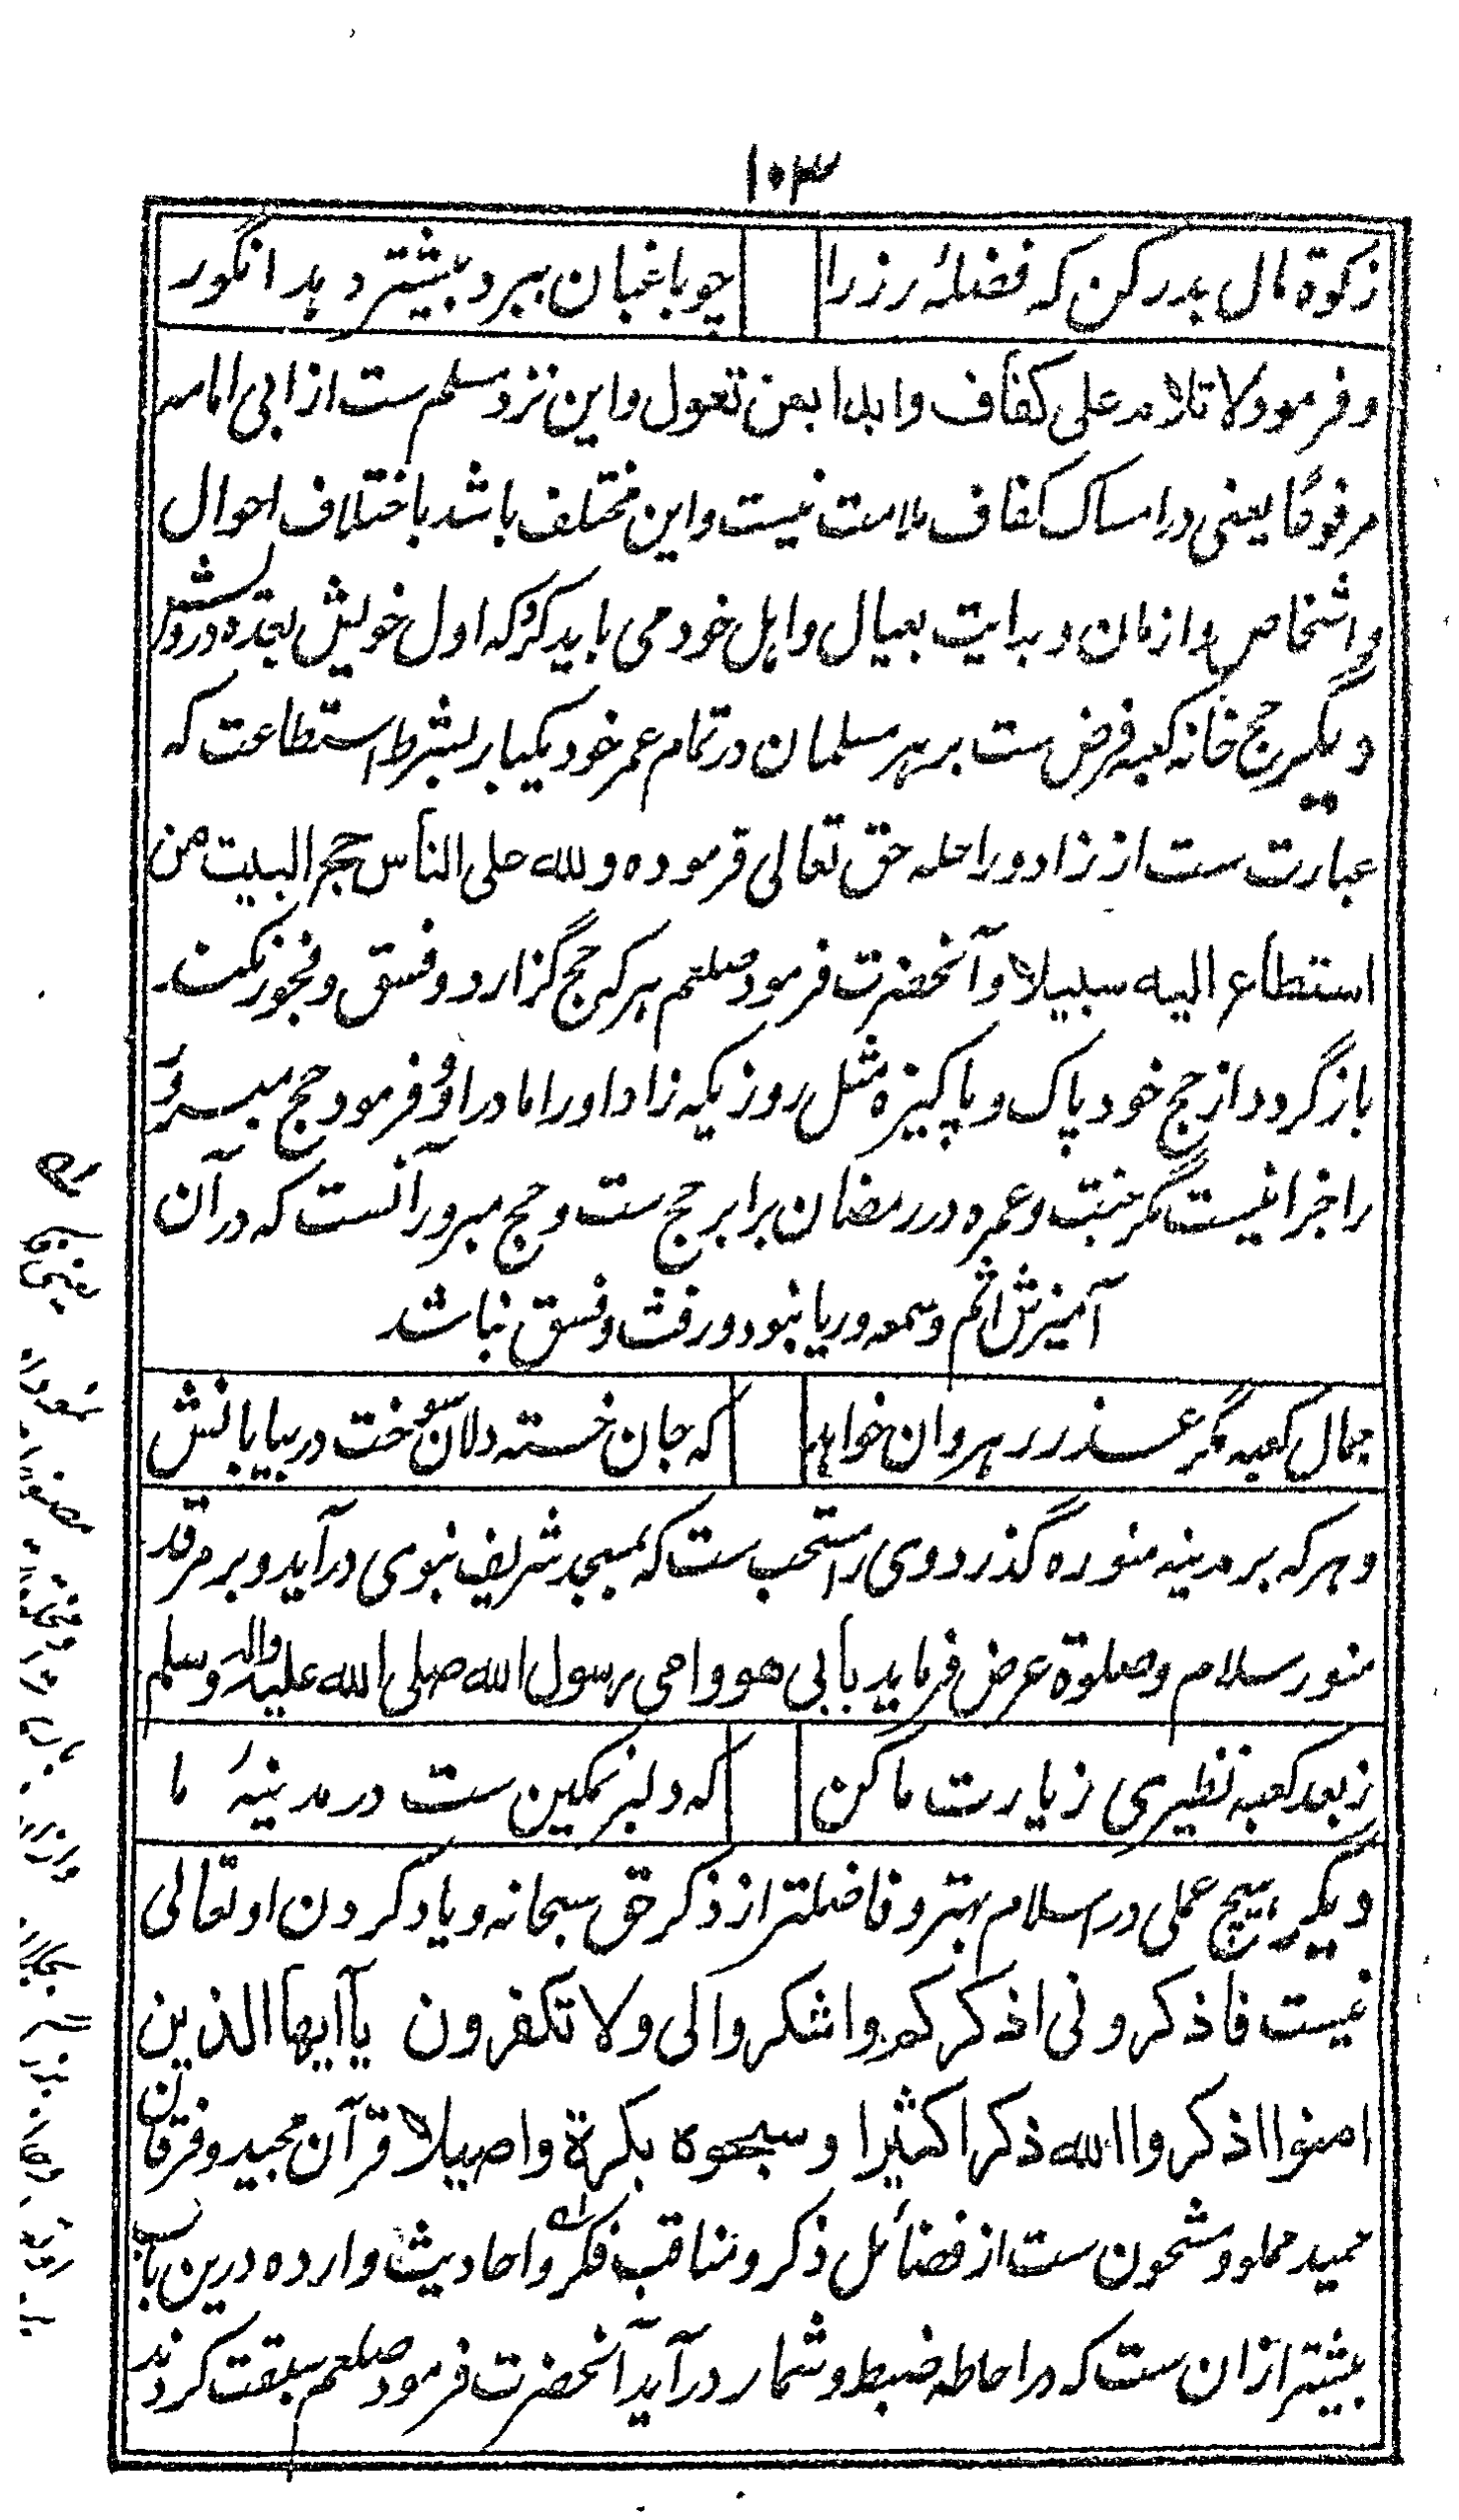 ۱۰۳
زکوة مال بدر کن که فضلهٔ رز را چو باغبان ببرد بیشتر دهد انگور
و فرمود ولا تلام علی کفاف وابدا بمن تعول و این نزد مسلم ست از ابی امامه
مرفوعًا یعنی در امساک کفاف ملامت نیست و این مختلف باشد باختلاف احوال
و اشخاص و ازمان و بدایت بعیال و اهل خود می باید کرد که اول خویش بعده درویش
دیگر حج خانه کعبه فرض ست بر هر مسلمان در تمام عمر خود یکبار بشرط استطاعت که
عبارت ست از زاد و راحله حق تعالی فرموده ولله علی الناس حج البیت من
استطاع الیه سبیلا و آنحضرت فرمود صلعم هر که حج گزارد و فسق و فجور نکند
باز گردد از حج خود پاک و پاکیزه مثل روزیکه زاد او را مادر او و فرمود حج مبرور
را جزا نیست مگر جنت و عمره در رمضان برابر حج ست و حج مبرور آنست که در آن
آمیزش اثم و سمعه و ریا نبود و رفث و فسق نباشد
جمال کعبه مگر عذر رهروان خواهد که جان خسته دلان سوخت در بیابانش
و هر که بر مدینه منوره گذرد وی را مستحب ست که بمسجد شریف نبوی در آید و بر مرقد
منور سلام و صلوة عرض فرماید بأبی هو وامی رسول الله صلی الله علیه واله وسلم
ز بعد کعبه نظیری زیارت ما کن که دلبر نمکین ست در مدینهٔ ما
دیگر هیچ عملی در اسلام بهتر و فاضلتر از ذکر حق سبحانه و یاد کردن او تعالی
نیست فاذکرونی اذکرکم واشکروا لی ولا تکفرون یاایها الذین
امنوا اذکروا الله ذکرا کثیرا وسبحوه بکرة واصیلا قرآن مجید و فرقان
حمید مملو و مشحون ست از فضائل ذکر و مناقب فکر و احادیث وارده درین باب
بیشتر ازان ست که در احاطه ضبط و شمار در آید آنحضرت فرمود صلعم سبقت کردند